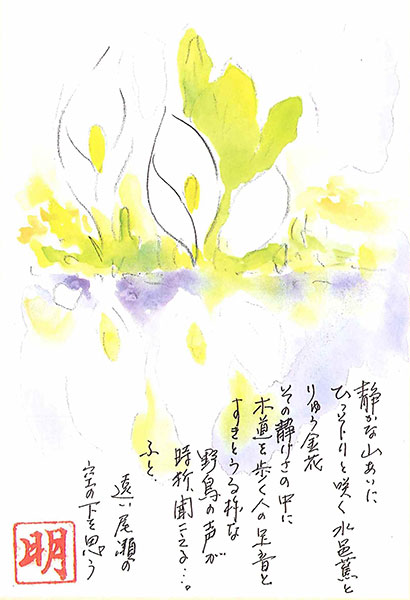 静かな山あいに
ひっそりと咲く水芭蕉と
りゅう金花
その静けさの中に
木道を歩く人の足音と
すきとうる様な
野鳥の声が
時折聞こえる…。
ふと
遠い尾瀬の
空の下を思う
明